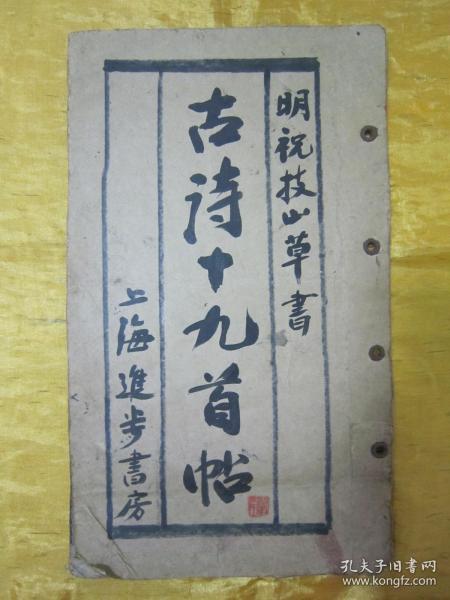 明祝技山草書
古诗十九首帖
上海進步書房
孔夫子旧书网
www.kongfz.com